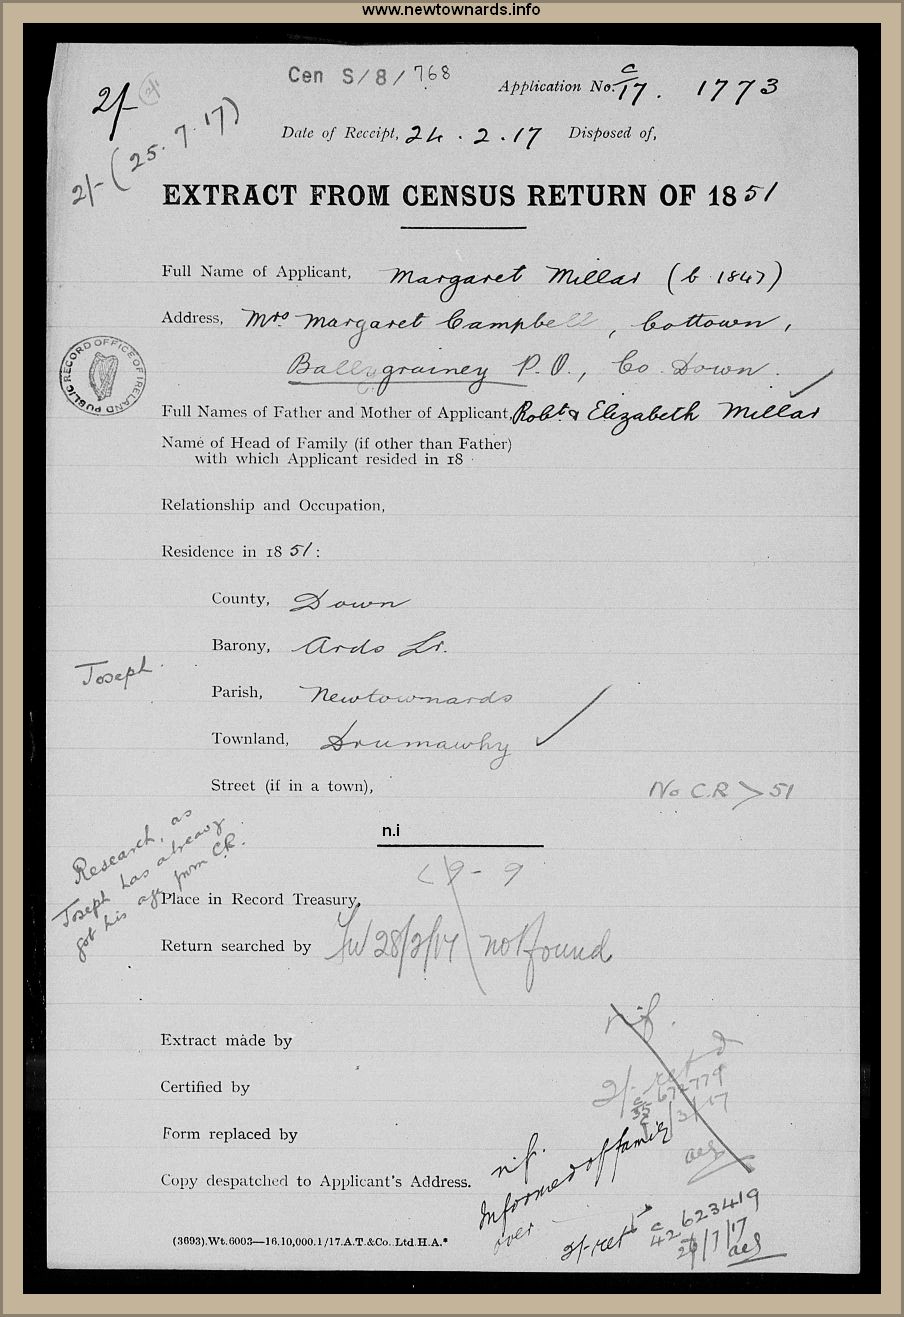 www.newtownards.info
Cen S/8/768
Application No. C/17. 1773
2/-
2/-
Date of Receipt, 24.2.17 Disposed of,
2/- (25.7.17)
EXTRACT FROM CENSUS RETURN OF 1851
Full Name of Applicant, Margaret Millar (b 1847)
Address, Mrs Margaret Campbell, Cottown,
Ballygrainey P.O., Co. Down.
PUBLIC RECORD OFFICE OF IRELAND
Full Names of Father and Mother of Applicant, Robt & Elizabeth Millar
Name of Head of Family (if other than Father)
with which Applicant resided in 18
Relationship and Occupation,
Residence in 1851:
County, Down
Barony, Ards Lr.
Joseph
Parish, Newtownards
Townland, Drumawhy
Street (if in a town),
No C.R > 51
Research, as
Joseph has already
got his age from C.R.
n.i
9 - 9
Place in Record Treasury,
Return searched by 28/2/17 not found
n.f.
Extract made by
2/- retd
Certified by
672779
/3/17
Form replaced by
aes
n.f.
Informed of family
over
Copy despatched to Applicant's Address.
2/- retd
C/42 623419
26/7/17
aes
(3693).Wt.6003—16.10,000.1/17.A.T.&Co.,Ltd.H.A.*